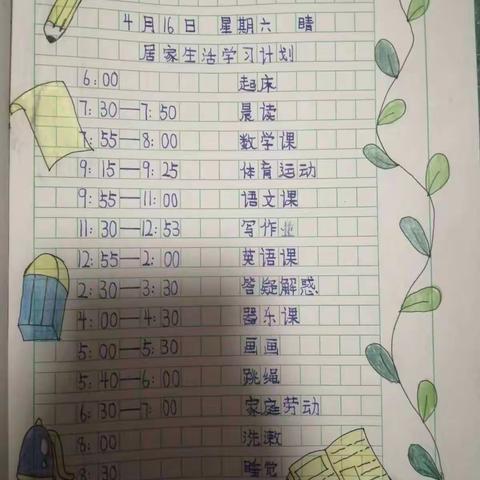 4月16日 星期六 晴
居家生活学习计划
6:00 起床
7:30—7:50 晨读
7:55—8:00 数学课
9:15—9:25 体育运动
9:55—11:00 语文课
11:30—12:53 写作业
12:55—2:00 英语课
2:30—3:30 答疑解惑
4:00—4:30 器乐课
5:00—5:30 画画
5:40—6:00 跳绳
6:30—7:00 家庭劳动
8:00 洗漱
8:30 睡觉